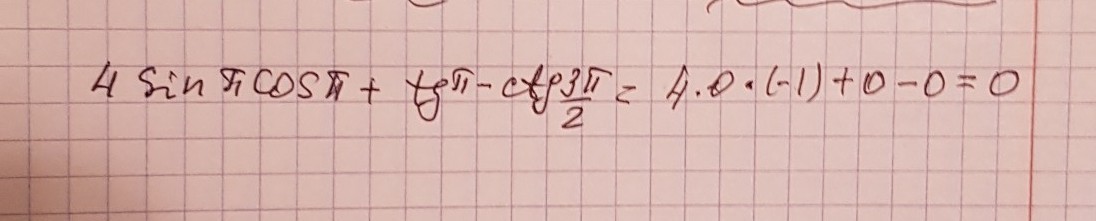 4 sin π cos π + tg π - ctg 3π/2 = 4·0·(-1)+0-0=0